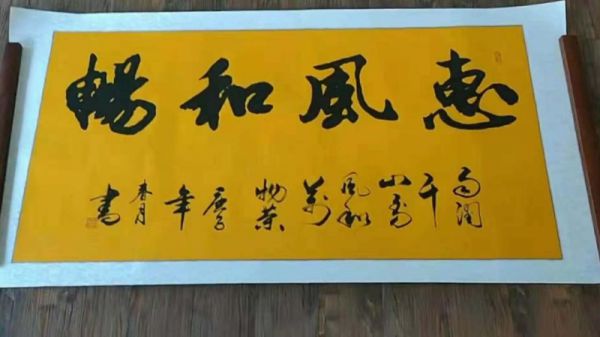 惠風和暢
雨潤千山秀風和萬物榮庚子年春月書